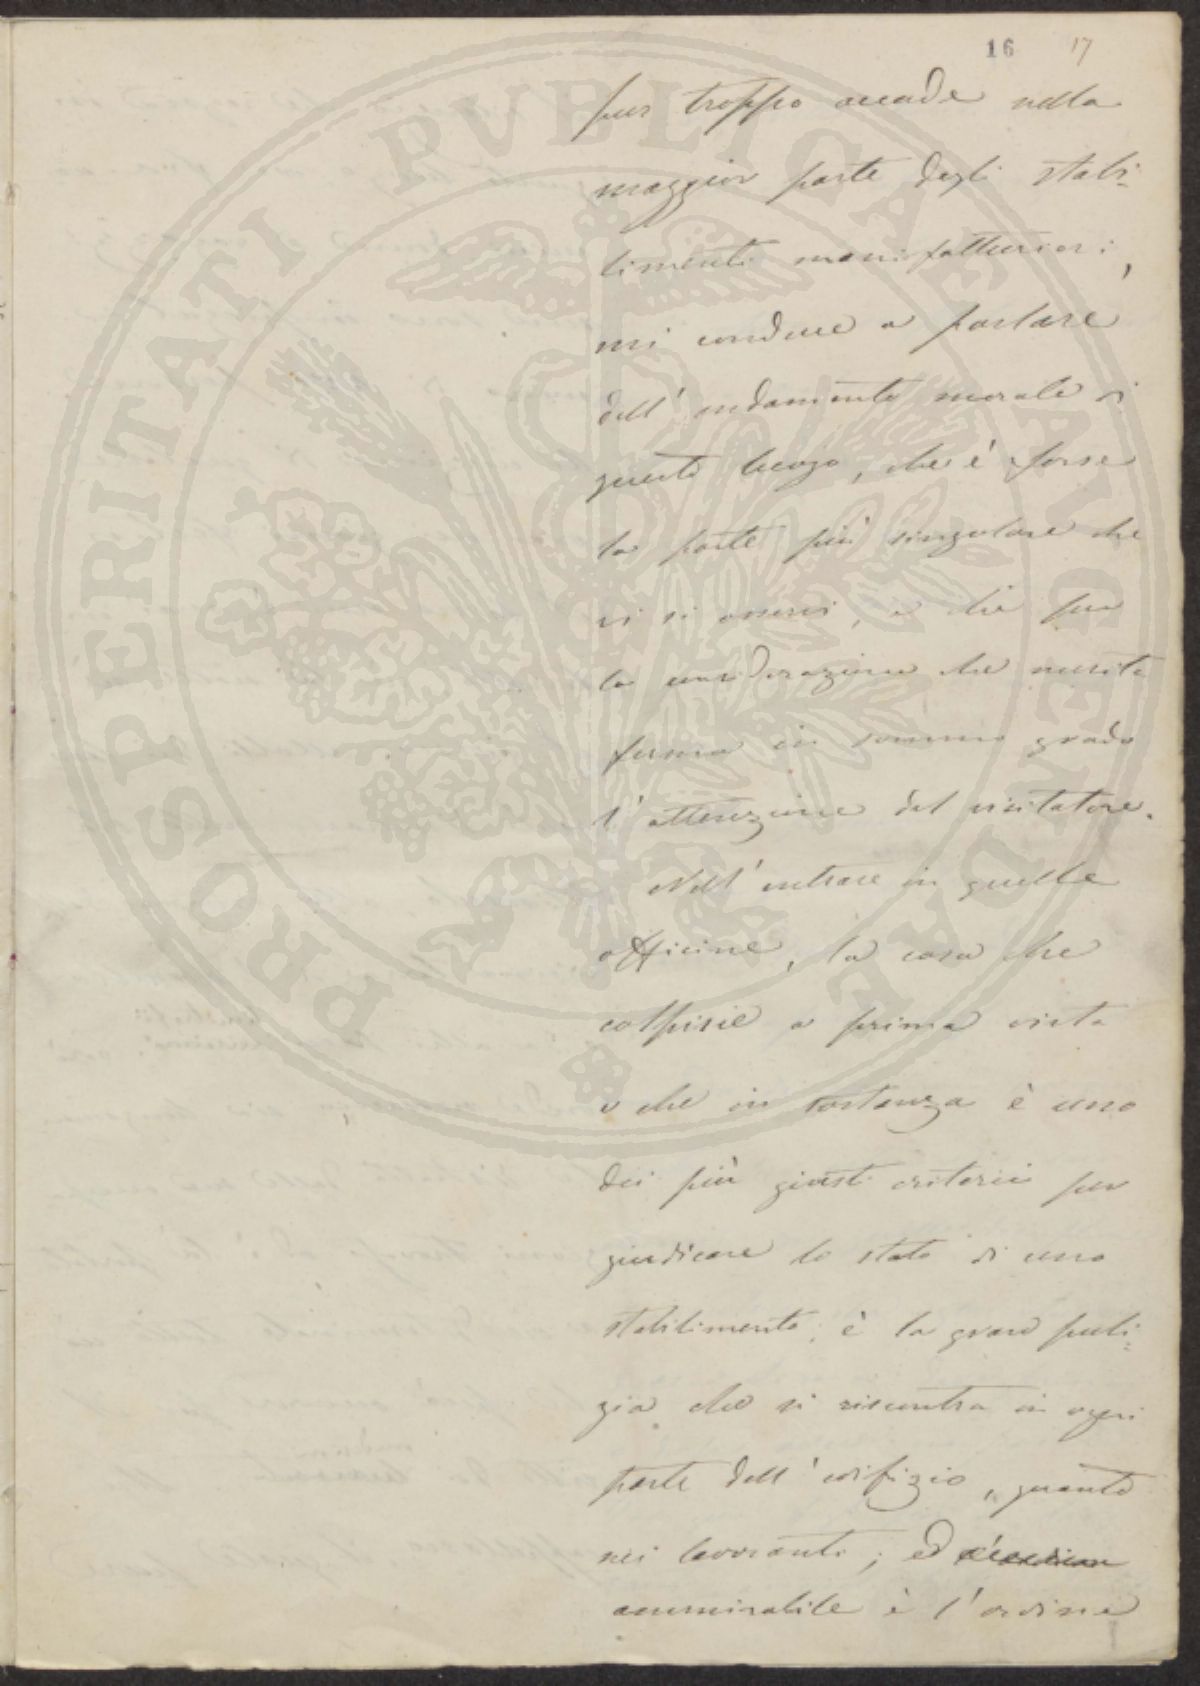 16 17
pur troppo accade nella
maggior parte degli stabi-
limenti manifatturieri,
mi conduce a parlare
dell'andamento morale di
questo luogo, che è forse
la parte più singolare che
vi si osservi, e che per
la considerazione che merita
ferma in sommo grado
l'attenzione del visitatore.
Nell'entrare in quelle
officine, la cosa che
colpisce a prima vista
e che in sostanza è uno
dei più giusti criterii per
giudicare lo stato di uno
stabilimento, è la gran puli-
zia che si riscontra in ogni
parte dell'edifizio, quanto
nei lavoranti; ed
ammirabile è l'ordine
PROSPERITATI PVBLICAE AVGENDAE